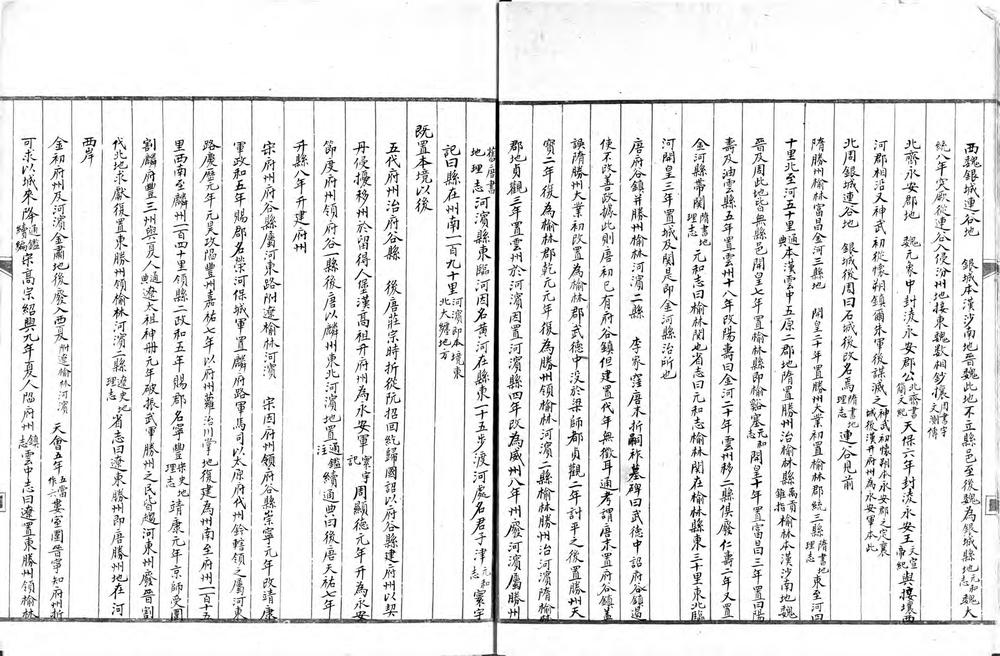 西魏銀城連谷地　銀城本漢沙南地晉魏此地不立縣邑至後魏為銀城縣地元和志魏大
統八年突厥從連谷侵汾州地接東魏數相鈔掠周書宇文測傳
北齊永安郡地　魏元象中封流永安郡公北齊書文紀天保六年封流永安王文宣帝紀與擾壤西
河郡相沿又神武初從懷朔鎮爾朱軍後謀滅之
北周銀城連谷地　銀城後周曰石城後改名焉隋書地理志連谷見前
隋勝州榆林富昌金河三縣地　開皇二十年置勝州大業初置榆林郡統三縣隋書地理志東至河四
十里北至河五十里通典本漢雲中五原二郡地隋置勝州治榆林縣榆林本漢沙南地魏
晉及周此地皆無縣邑開皇七年置榆林縣即榆谿塞元和志開皇十年置富昌三年置曰陽
壽及油雲縣五年置雲州十八年改陽壽曰金河二十年雲州移二縣俱廢仁壽二年又置
金河縣帶關隋書地理志元和志曰榆林關也省志曰元和志榆林關在榆林縣東三十里東北臨
河開皇三年置城及關是即金河縣治所也
唐府谷鎮并勝州榆林河濱二縣　李家窪唐木折嗣祚墓碑曰武德中詔府谷鎮遏
使不改善政據此則唐初已有府谷鎮但建置代年無徵耳通考謂唐末置府谷鎮蓋
誤隋勝州大業初改置為榆林郡武德中沒於梁師都貞觀二年討平之後置勝州天
寶二年復為榆林郡乾元元年復為勝州領榆林河濱二縣榆林勝州治河濱隋榆林
郡地貞觀三年置雲州於河濱因置河濱縣四年改為威州八年州廢河濱屬勝州
舊唐書地理志河濱縣東臨河因名黃河在縣東一十五步渡河處名君子津元和志寰宇
記曰縣在州南一百九十里河濱即本境東北大塘地方
既置本境以後
五代府州治府谷縣　後唐莊宗時折從阮招回紇歸國詔以府谷縣建府州以契
丹侵擾移州於留得人堡漢高祖升府州為永安軍寰宇記周顯德元年升為永安
節度府州領府谷一縣後唐以麟州東北河濱地置通鑑注續通典曰後唐天祐七年
升縣八年升建府州
宋府州府谷縣屬河東路附遼榆林河濱　宋因府州領府谷縣崇寧元年改靖康
軍政和五年賜郡名榮河保城軍置麟府路軍馬司以太原府代州鈐轄領之屬河東
路慶曆元年元昊攻陷豐州嘉祐七年以府州蘿泊川掌地復建為州南至府州一百十五
里西南至麟州一百四十里領縣二政和五年賜郡名寧豐宋史地理志靖康元年京師受圍
割麟府豐三州與夏人通典遼太祖神冊元年破振武軍勝州之民皆趨河東州廢晉割
代北地求獻復置東勝州領榆林河濱二縣遼史地理志省志曰遼東勝州即唐勝州地在河
西岸
金初府州及河濱金肅地後廢入西夏附遼榆林河濱　天會五年五當作六婁室圍晉寧知府州折
可求以城來降通鑑續編宋高宗紹興九年夏人陷府州鎮志雲中志曰遼置東勝州領榆林